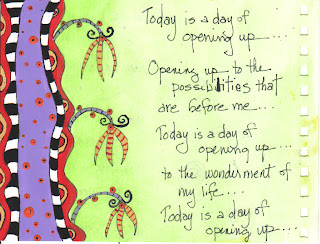 Today is a day of
opening up.....
Opening up to the
possibilities that
are before me....
Today is a day of
opening up....
to the wonderment of
my life....
Today is a day of
opening up....